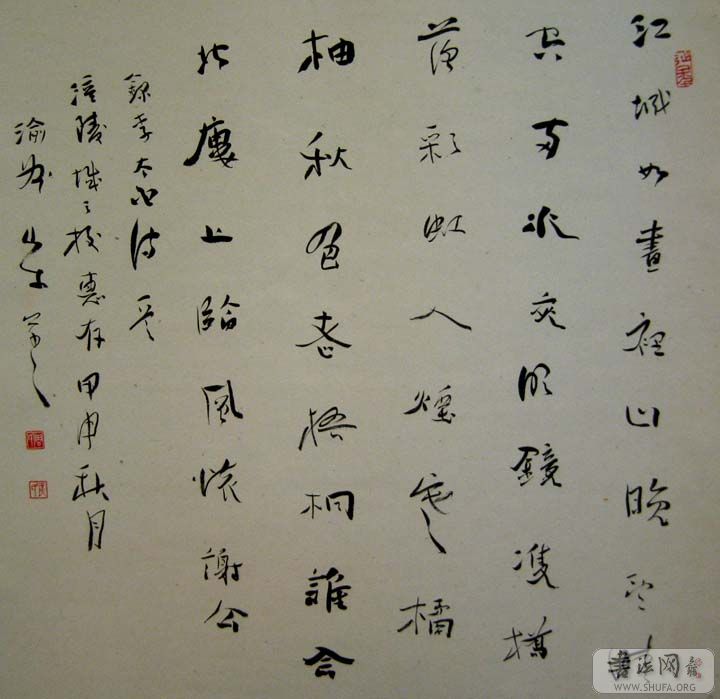 江城如畫裡山晚望晴
空兩水夾明鏡雙橋
落彩虹人煙寒橘
柚秋色老梧桐誰念
北樓上臨風懷謝公
錄李太白詩
涪陵城校惠存甲申秋月
渝州
書法网
WWW.SHUFA.ORG